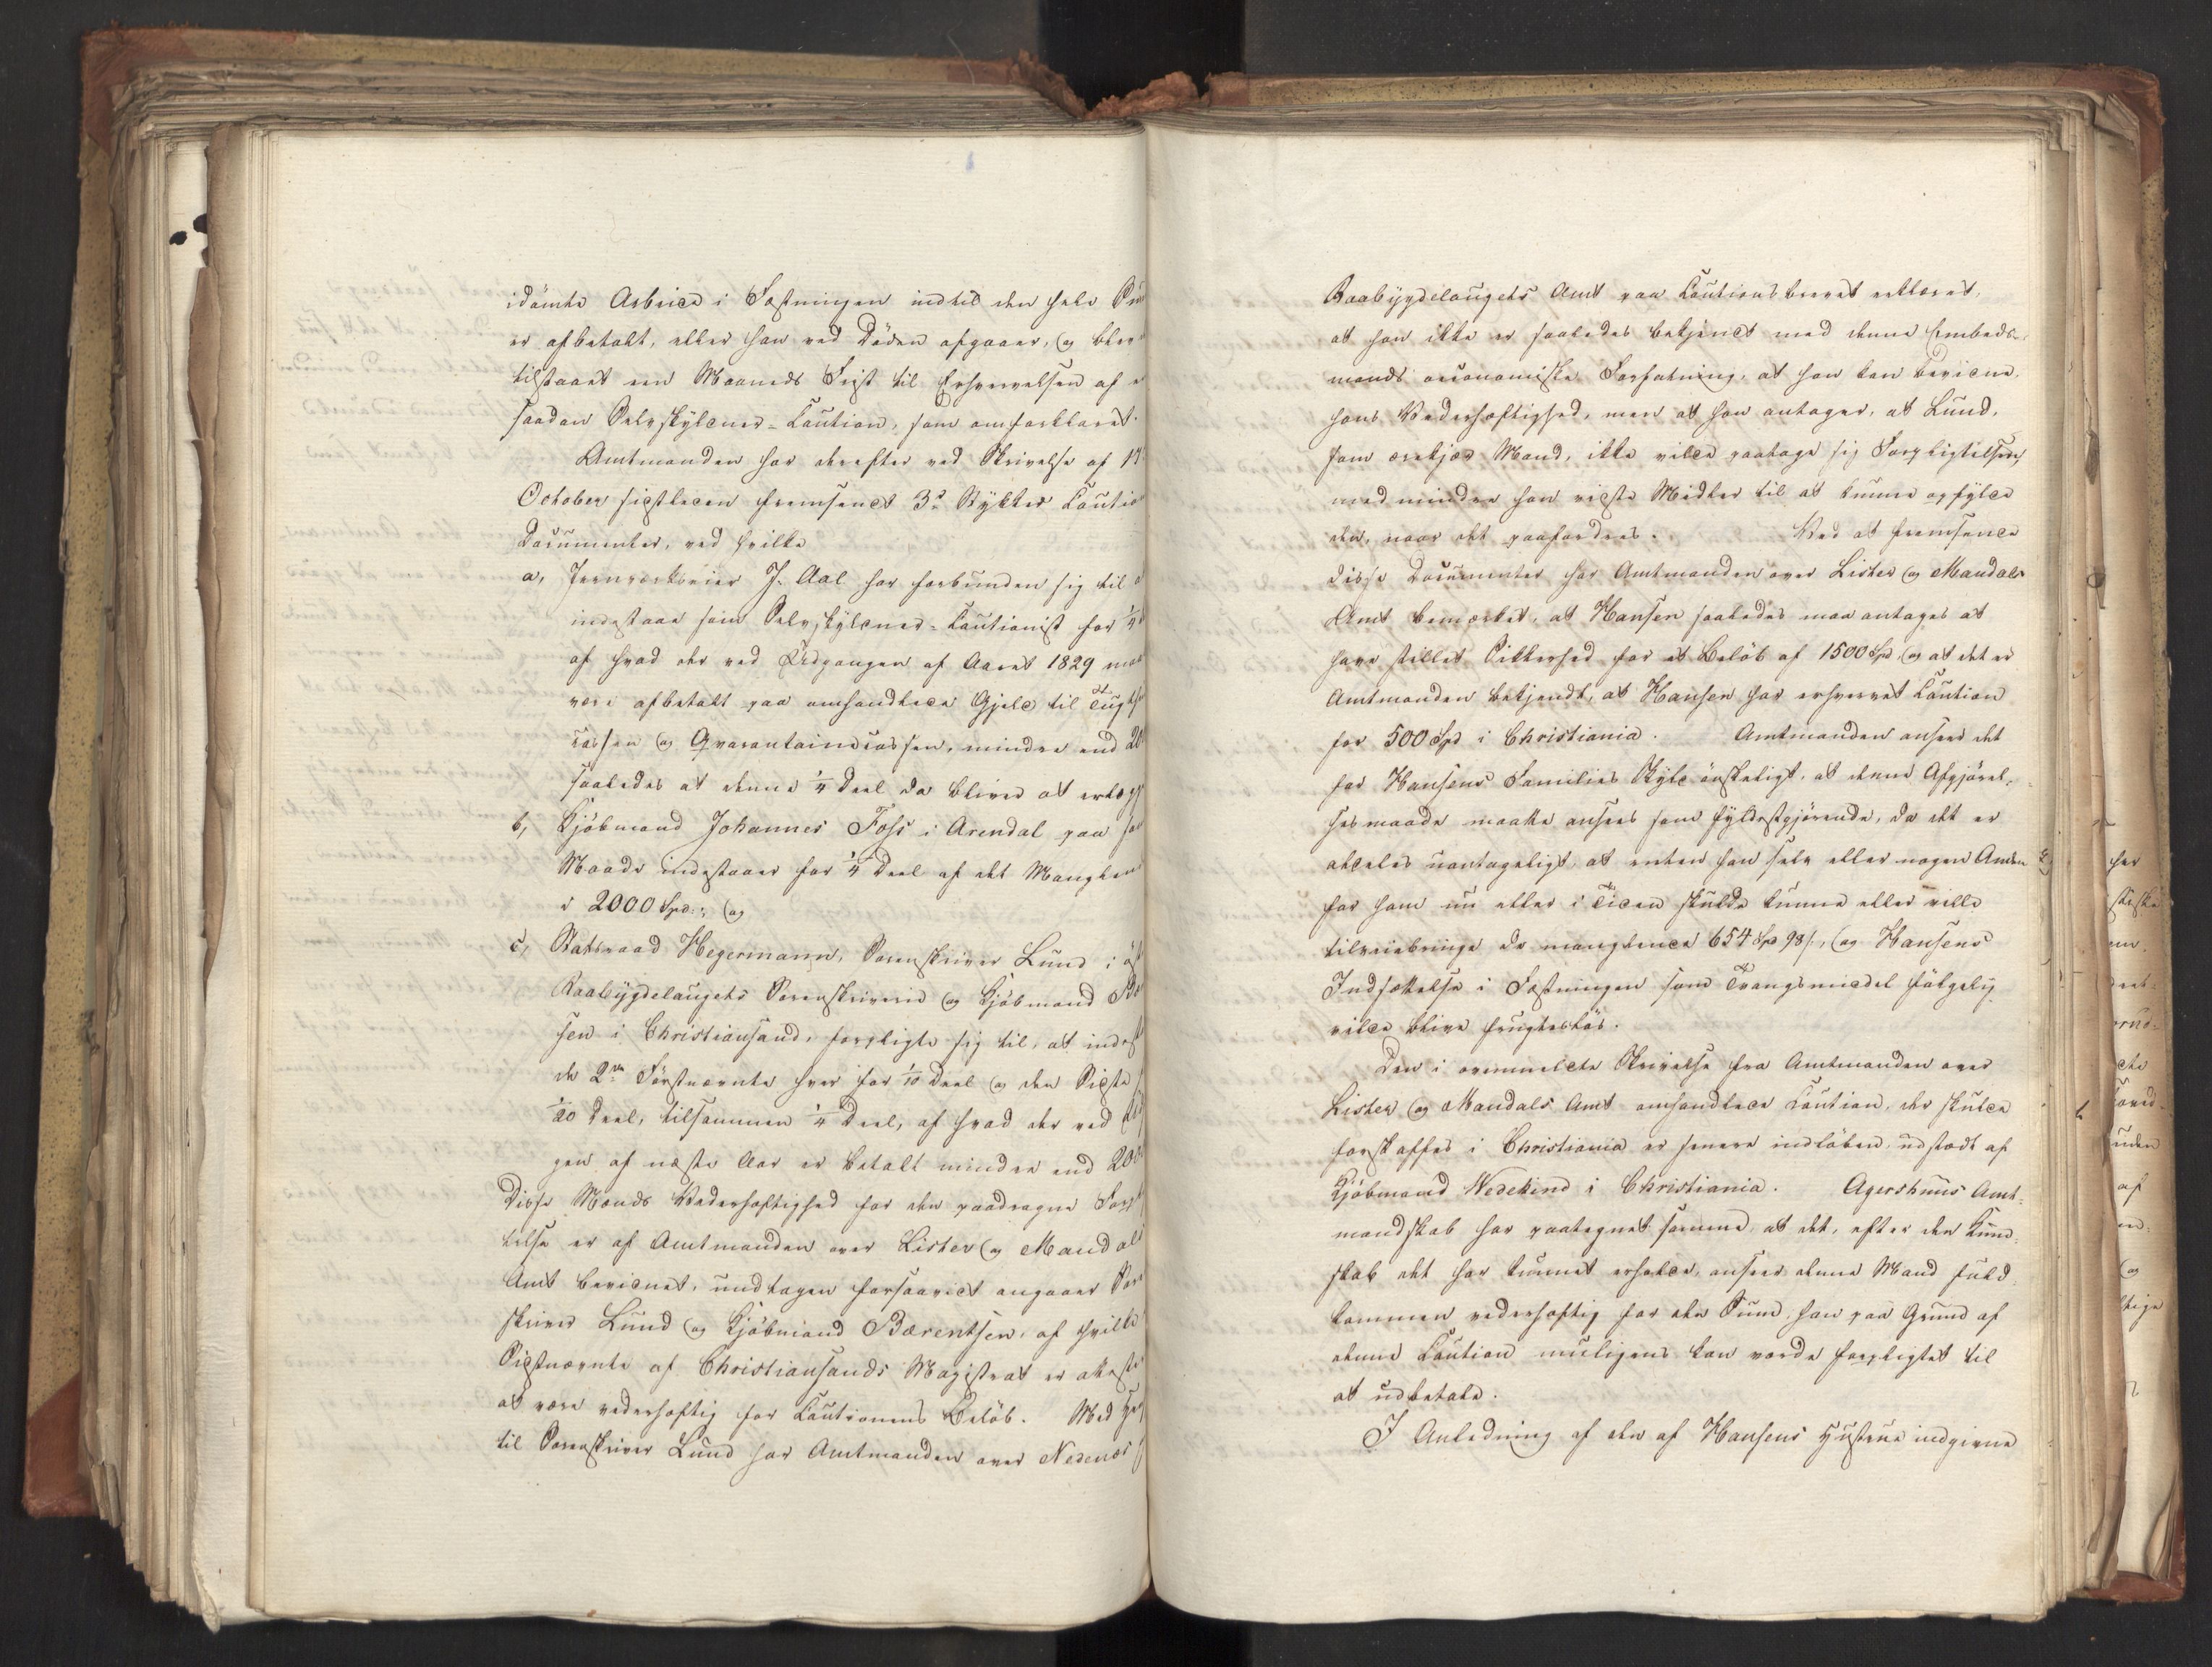 idömte Arbeide i Fæstningen indtil den hele
er afbetalt, eller han ved Döden afgaaer, og blev
tilstaaet een Maaneds Frist til Erhvervelsen af
saadan Selvskyldner-Caution, som omforklaret.
Amtmanden har derefter ved Skrivelse af 17
October sidstleden fremsendt 3de Stykker
Documenter, ved hvilke
a, Jernværkseier J. Aal har forbunden sig til
indestaae som Selvskyldner-Cautionist for 1/4
af hvad der ved Udgangen af Aaret 1829
være afbetalt paa omhandlede Gjeld til
cassen og Qvarantainecassen, mindre end
saaledes at denne 1/4 Deel da bliver at
b, Kjöbmand Johannes Foss i Arendal paa
Maade indestaaer for 1/4 Deel af det
i 2000 Spd:; og
c, Statsraad Hegermann, Sorenskriver Lund i
Raabygdelaugets Sorenskriverie og Kjöbmand
sen i Christiansand, forpligte sig til, at
de 2de Förstnævnte hver for 1/10 Deel og den Sidste
1/20 Deel, tilsammen 1/4 Deel, af hvad der ved
gen af næste Aar er betalt mindre end
Disse Mænds Vederhæftighed for den paadragne
telse er af Amtmanden over Lister og Mandals
Amt bevidnet, undtagen forsaavidt angaaer
skriver Lund og Kjöbmand Bærentsen, af hvilke
Sidstnævnte af Christiansands Magistrat er
at være vederhæftig for Cautionens Belöb. Med
til Sorenskriver Lund har Amtmanden over Nedenæs
Raabygdelaugets Amt paa Cautionsbrevet erklæret,
at han ikke er saaledes bekjendt med denne Embeds-
mands oeconomiske Forfatning, at han kan bevidne
hans Vederhæftighed, men at han antager, at Lund,
som ærekjær Mand, ikke vilde paatage sig Forpligtelsen,
med mindre han vidste Midler til at kunne opfylde
den, naar det paafordres. Ved at fremsende
disse Documenter har Amtmanden over Lister og Mandals
Amt bemærket, at Hansen saaledes maa antages at
have stillet Sikkerhed for et Belöb af 1500 Spd og at det er
Amtmanden bekjendt, at Hansen har erhvervet Caution
for 500 Spd i Christiania. Amtmanden anseer det
for Hansens Families Skyld önskeligt, at denne Afgjörel-
sesmaade maatte ansees som fyldestgjörende, da det er
aldeles uantageligt, at enten han selv eller nogen Anden
for ham nu eller i Tiden skulde kunne eller ville
tilveiebringe de manglende 654 Spd 98 s., og Hansens
Indsættelse i Fæstningen som Tvangsmiddel fölgelig
vilde blive frugteslös.
Den i ovenmeldte Skrivelse fra Amtmanden over
Lister og Mandals Amt omhandlede Caution, der skulde
forskaffes i Christiania er senere indlöben, udstædt af
Kjöbmand Wedekind i Christiania. Agershuus Amt-
mandskab har paategnet samme, at det, efter den Kund-
skab det har kunnet erholde, anseer denne Mand fuld-
kommen vederhæftig for den Sum, han paa Grund af
denne Caution muligens kan vorde forpligtet til
at udbetale.
I Anledning af den af Hansens Hustrue indgivne